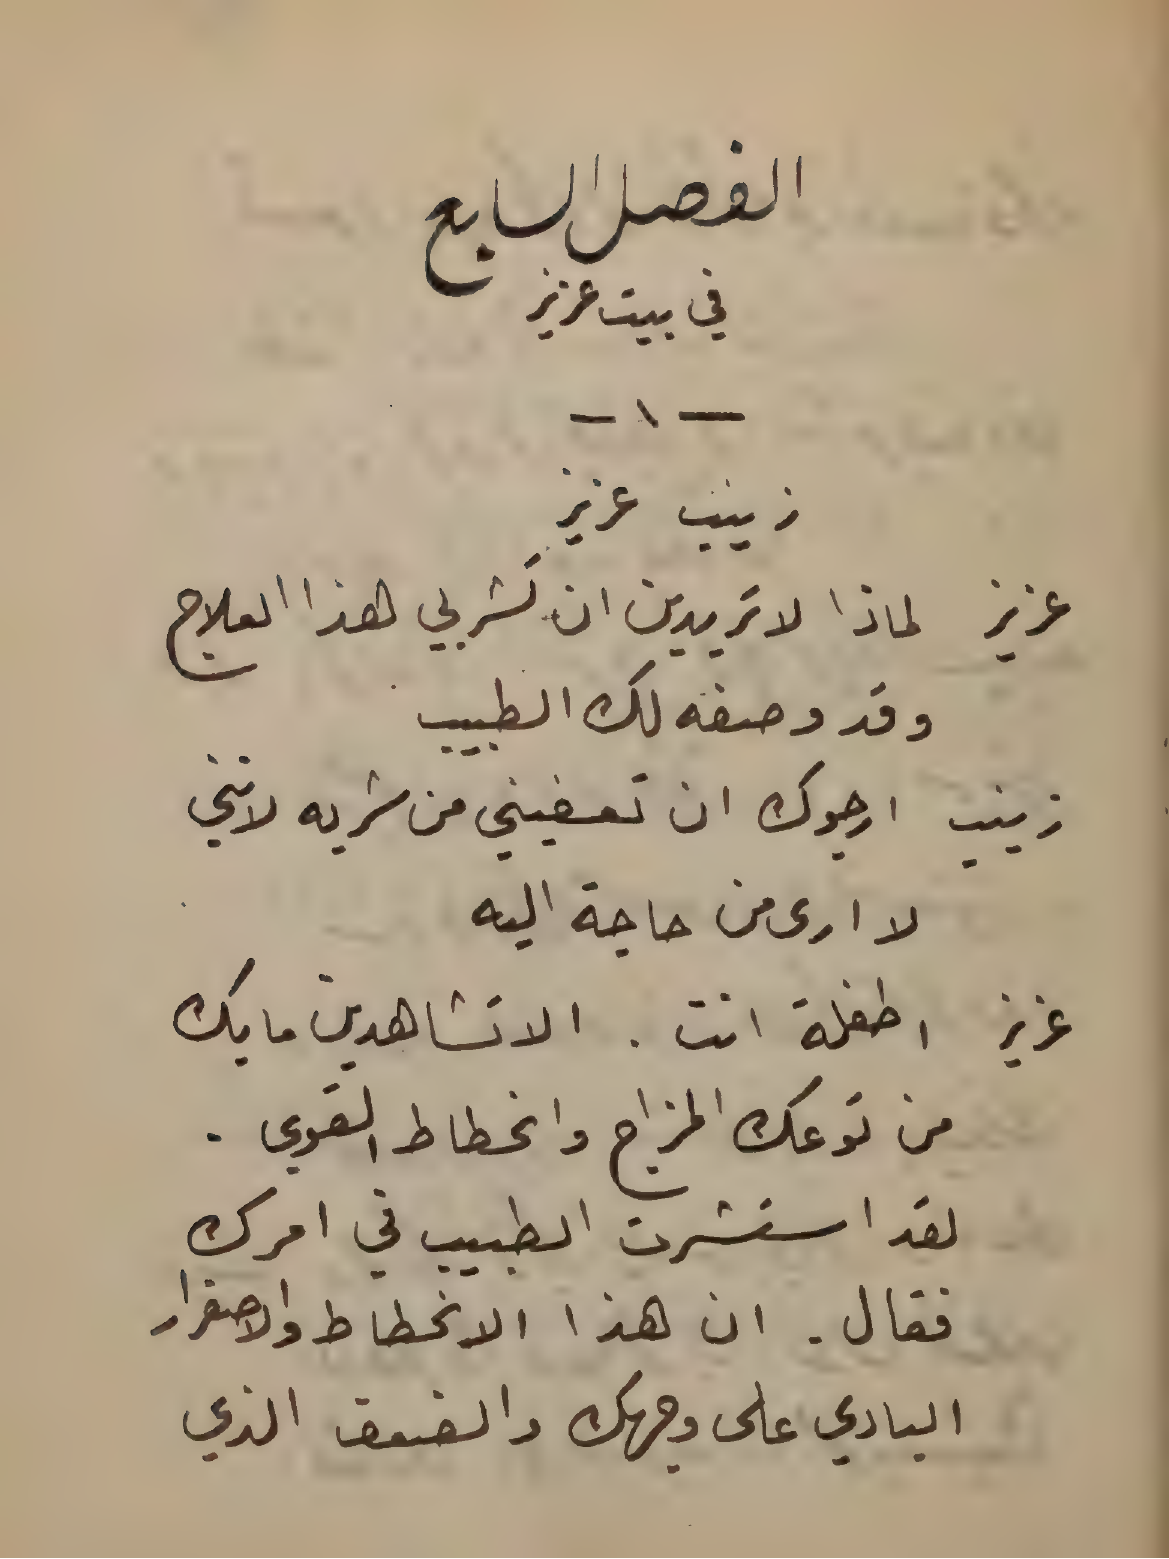 الفصل السابع
في بيت عزيز
— ١ —
زينب عزيز
عزيز لماذا لا تريدين ان تشربي هذا العلاج
وقد وصفه لك الطبيب
زينب ارجوك ان تعفيني من شربه لانني
لا ارى من حاجة اليه
عزيز اطفلة انت . الا تشاهدين ما بك
من توعك المزاج وانحطاط القوى .
لقد استشرت الطبيب في امرك
فقال . ان هذا الانحطاط والاصفرار
البادي على وجهك والضعف الذي